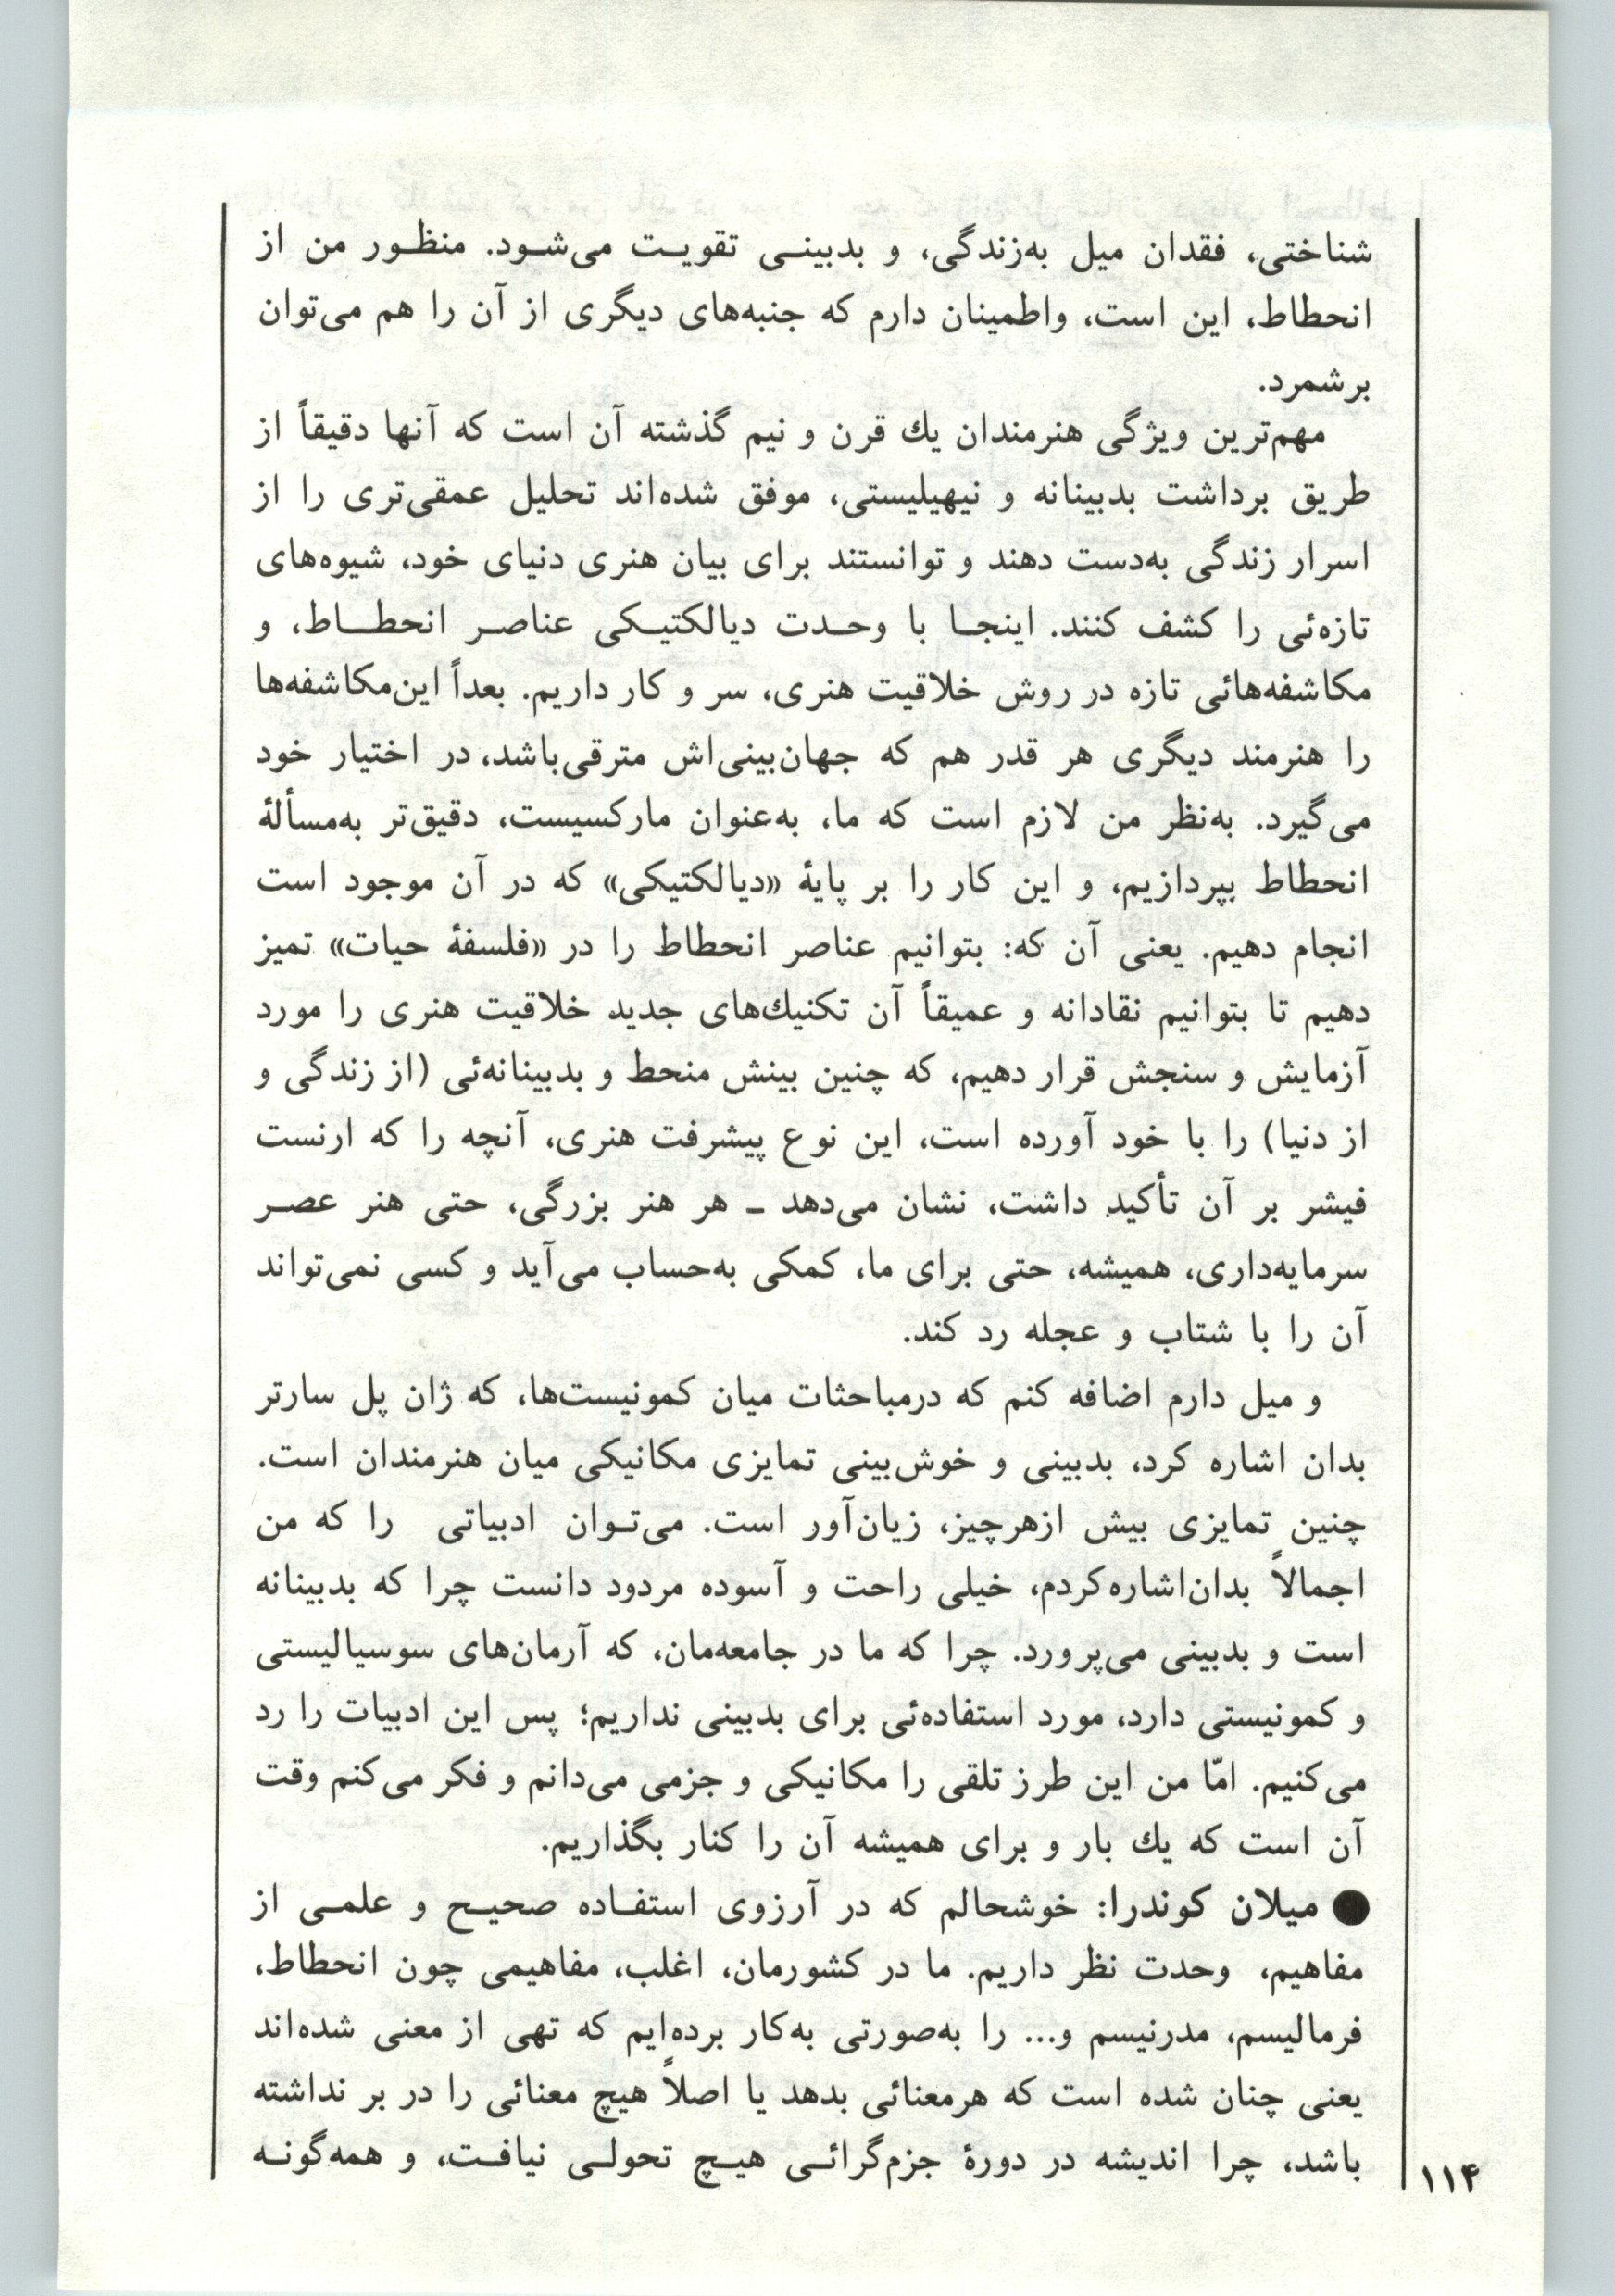 شناختی، فقدان میل به‌زندگی، و بدبینـی تقویـت می‌شـود. منظـور من از
انحطاط، این است، واطمینان دارم که جنبه‌های دیگری از آن را هم می‌توان
برشمرد.
مهم‌ترین ویژگی هنرمندان یك قرن و نیم گذشته آن است که آنها دقیقاً از
طریق برداشت بدبینانه و نیهیلیستی، موفق شده‌اند تحلیل عمقی‌تری را از
اسرار زندگی به‌دست دهند و توانستند برای بیان هنری دنیای خود، شیوه‌های
تازه‌ئی را کشف کنند. اینجـا با وحـدت دیالکتیـکی عناصـر انحطـاط، و
مکاشفه‌هائی تازه در روش خلاقیت هنری، سر و کار داریم. بعداً این‌مکاشفه‌ها
را هنرمند دیگری هر قدر هم که جهان‌بینی‌اش مترقی‌باشد، در اختیار خود
می‌گیرد. به‌نظر من لازم است که ما، به‌عنوان مارکسیست، دقیق‌تر به‌مسألهٔ
انحطاط بپردازیم، و این کار را بر پایهٔ «دیالکتیکی» که در آن موجود است
انجام دهیم. یعنی آن که: بتوانیم عناصر انحطاط را در «فلسفهٔ حیات» تمیز
دهیم تا بتوانیم نقادانه و عمیقاً آن تکنیك‌های جدید خلاقیت هنری را مورد
آزمایش و سنجش قرار دهیم، که چنین بینش منحط و بدبینانه‌ئی (از زندگی و
از دنیا) را با خود آورده است، این نوع پیشرفت هنری، آنچه را که ارنست
فیشر بر آن تأکید داشت، نشان می‌دهد ـ هر هنر بزرگی، حتی هنر عصـر
سرمایه‌داری، همیشه، حتی برای ما، کمکی به‌حساب می‌آید و کسی نمی‌تواند
آن را با شتاب و عجله رد کند.
و میل دارم اضافه کنم که درمباحثات میان کمونیست‌ها، که ژان پل سارتر
بدان اشاره کرد، بدبینی و خوش‌بینی تمایزی مکانیکی میان هنرمندان است.
چنین تمایزی بیش ازهرچیز، زیان‌آور است. می‌تـوان ادبیاتی را که من
اجمالاً بدان‌اشاره‌کردم، خیلی راحت و آسوده مردود دانست چرا که بدبینانه
است و بدبینی می‌پرورد. چرا که ما در جامعه‌مان، که آرمان‌های سوسیالیستی
و کمونیستی دارد، مورد استفاده‌ئی برای بدبینی نداریم؛ پس این ادبیات را رد
می‌کنیم. امّا من این طرز تلقی را مکانیکی و جزمی می‌دانم و فکر می‌کنم وقت
آن است که یك بار و برای همیشه آن را کنار بگذاریم.
● میلان کوندرا: خوشحالم که در آرزوی استفـاده صحیـح و علمـی از
مفاهیم، وحدت نظر داریم. ما در کشورمان، اغلب، مفاهیمی چون انحطاط،
فرمالیسم، مدرنیسم و... را به‌صورتی به‌کار برده‌ایم که تهی از معنی شده‌اند
یعنی چنان شده است که هرمعنائی بدهد یا اصلاً هیچ معنائی را در بر نداشته
باشد، چرا اندیشه در دورهٔ جزم‌گرائـی هیـچ تحولـی نیافـت، و همه‌گونـه
۱۱۴